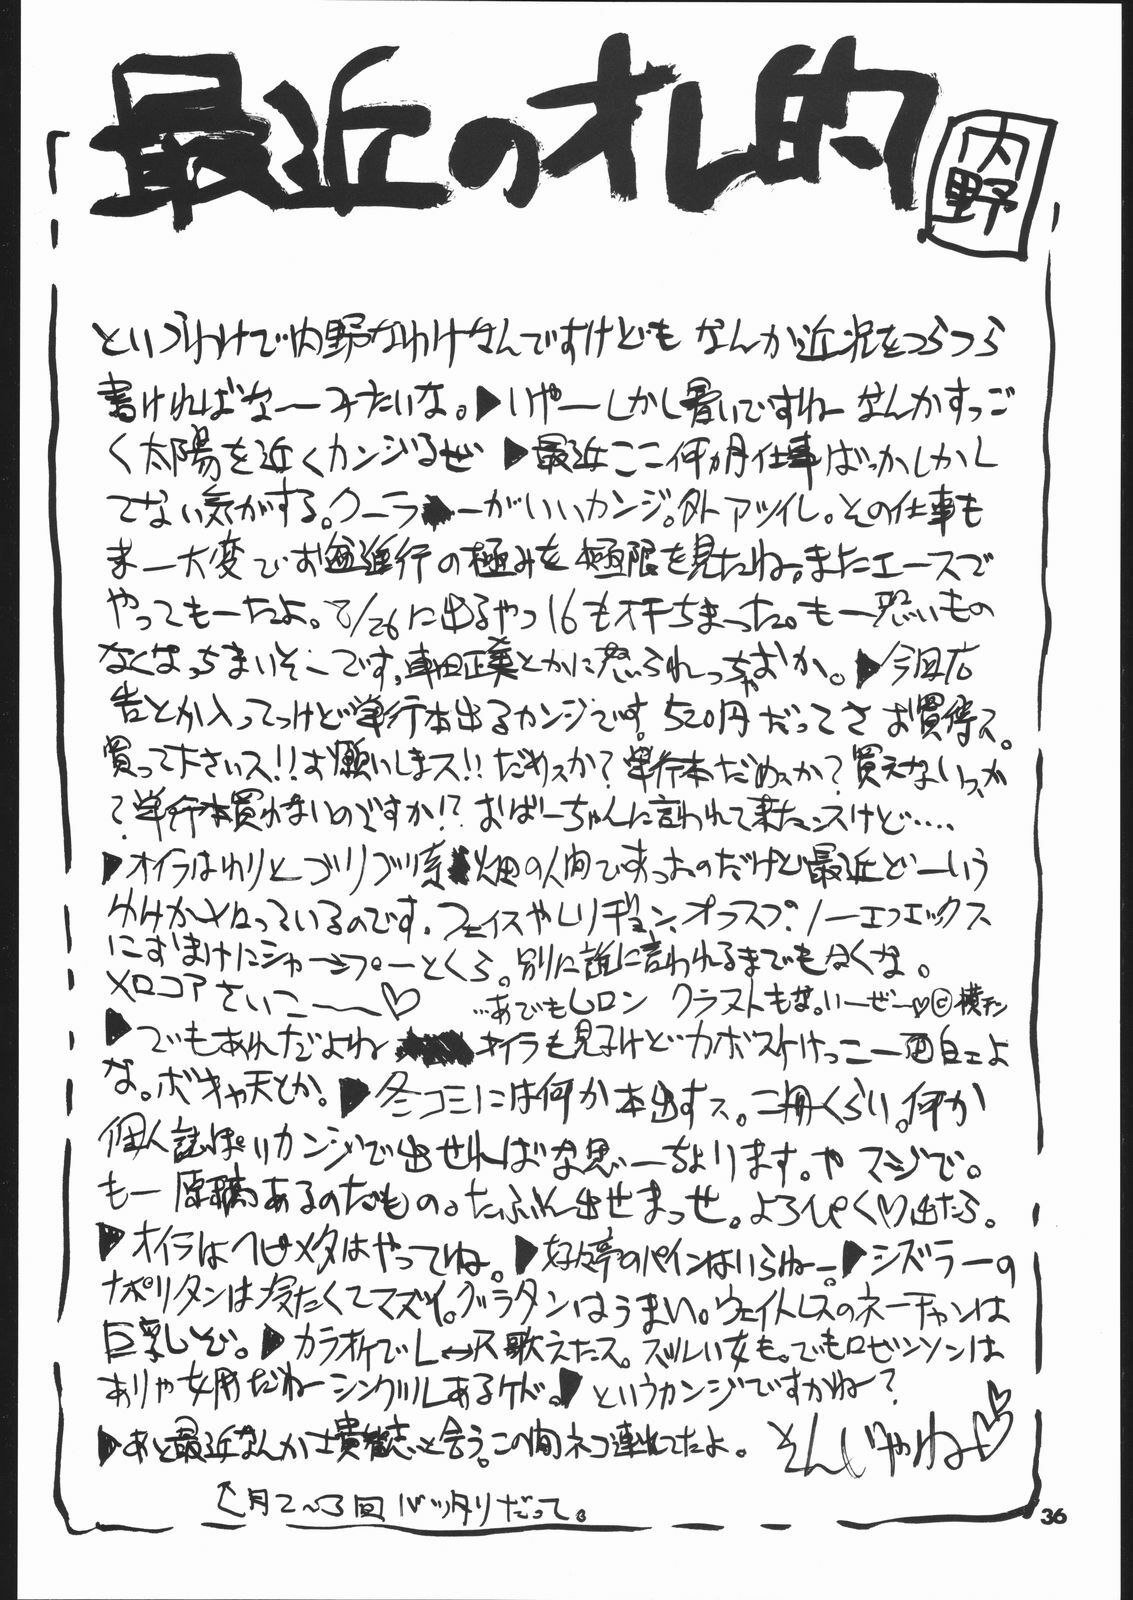 最近のオレ的
内野
というわけで内野なわけなんですけども なんか近況をつらつら
書ければな〜みたいな。▶いやーしかし暑いですねー なんかすっご
く太陽を近くカンジるぜ ▶最近ここ何ヵ月仕事ばっかしかし
てない気がする。クーラーがいいカンジ。外アツイし。その仕事も
まー大変でお進行の極みを極限を見たね。またエースで
やってもーたよ。8/26に出るやつ16もオチちまった。もー恐いもの
なくなっちまいそーです。車田正美とかに怒られっちゃおか。▶今回広
告とか入ってっけど単行本出るカンジです。520円だってさ お買得ス。
買って下さいス!!お願いしまス!!だめスか?単行本だめスか?買えないスか
?単行本買わないのですか!?おばーちゃんに言われて来たンスけど‥‥
▶オイラはわりとゴリゴリ系畑の人間ですったのだけど最近どーいう
わけかメロっているのです。フェイスやレリギョン、オフスプ、ノーエフエックス
におまけにシャーンプーとくら。別に誰に言われるまでもなくな。
メロコアさいこ〜〜♡ …あでもLロン クラストもな。いーぜー♡©横チン
▶でもあれだよね オイラも見るけどカボスけっこー面白ェよ
な。ボキャ天とか。▶冬コミには何か本出すス。二冊くらい。何か
個人誌ぽいカンジで出せればな思ーちょります。や マジで。
もー原稿あるのだもの。たぶん出せまっせ。よろぴく♡出たら。
▶オイラはヘビメタはやってね。▶好々亭のパインはいらねー。▶シズラーの
ナポリタンは冷たくてマズイ。グラタンはうまい。ウェイトレスのネーチャンは
巨乳しぞ。▶カラオケでL↔R歌えたス。ズルい女も。でもロビンソンは
ありゃ女用だねーシングルあるケド。▶というカンジですかねー?
▶あと最近なんか士貴智志と会う。この間ネコ連れてたよ。 そんじゃね〜♡
↑月2〜3回バッタリだって。
36